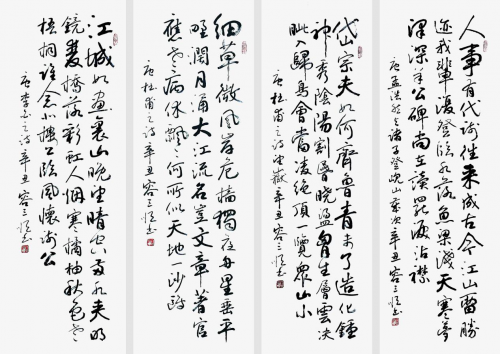 人事有代謝往来成古今江山留勝
迹我輩復登临水落魚梁浅天寒夢
泽深羊公碑尚在读罷泪沾襟
唐孟浩然與诸子登岘山辛丑容三恒书
岱宗夫如何齊魯青未了造化鍾
神秀陰陽割昏曉盪胸生層雲决
眦入歸鳥會當凌绝頂一覽眾山小
唐杜甫之诗望嶽辛丑容三恒书
细草微風岸危檣獨夜舟星垂平
野阔月涌大江流名豈文章著官
應老病休飄飄何所似天地一沙鷗
唐杜甫之诗辛丑容三恒书
江城如畫裏山晚望晴空兩水夹明
鏡雙橋落彩虹人烟寒橘柚秋色老
梧桐谁念北樓上临風懷谢公
唐李白之诗辛丑容三恒书